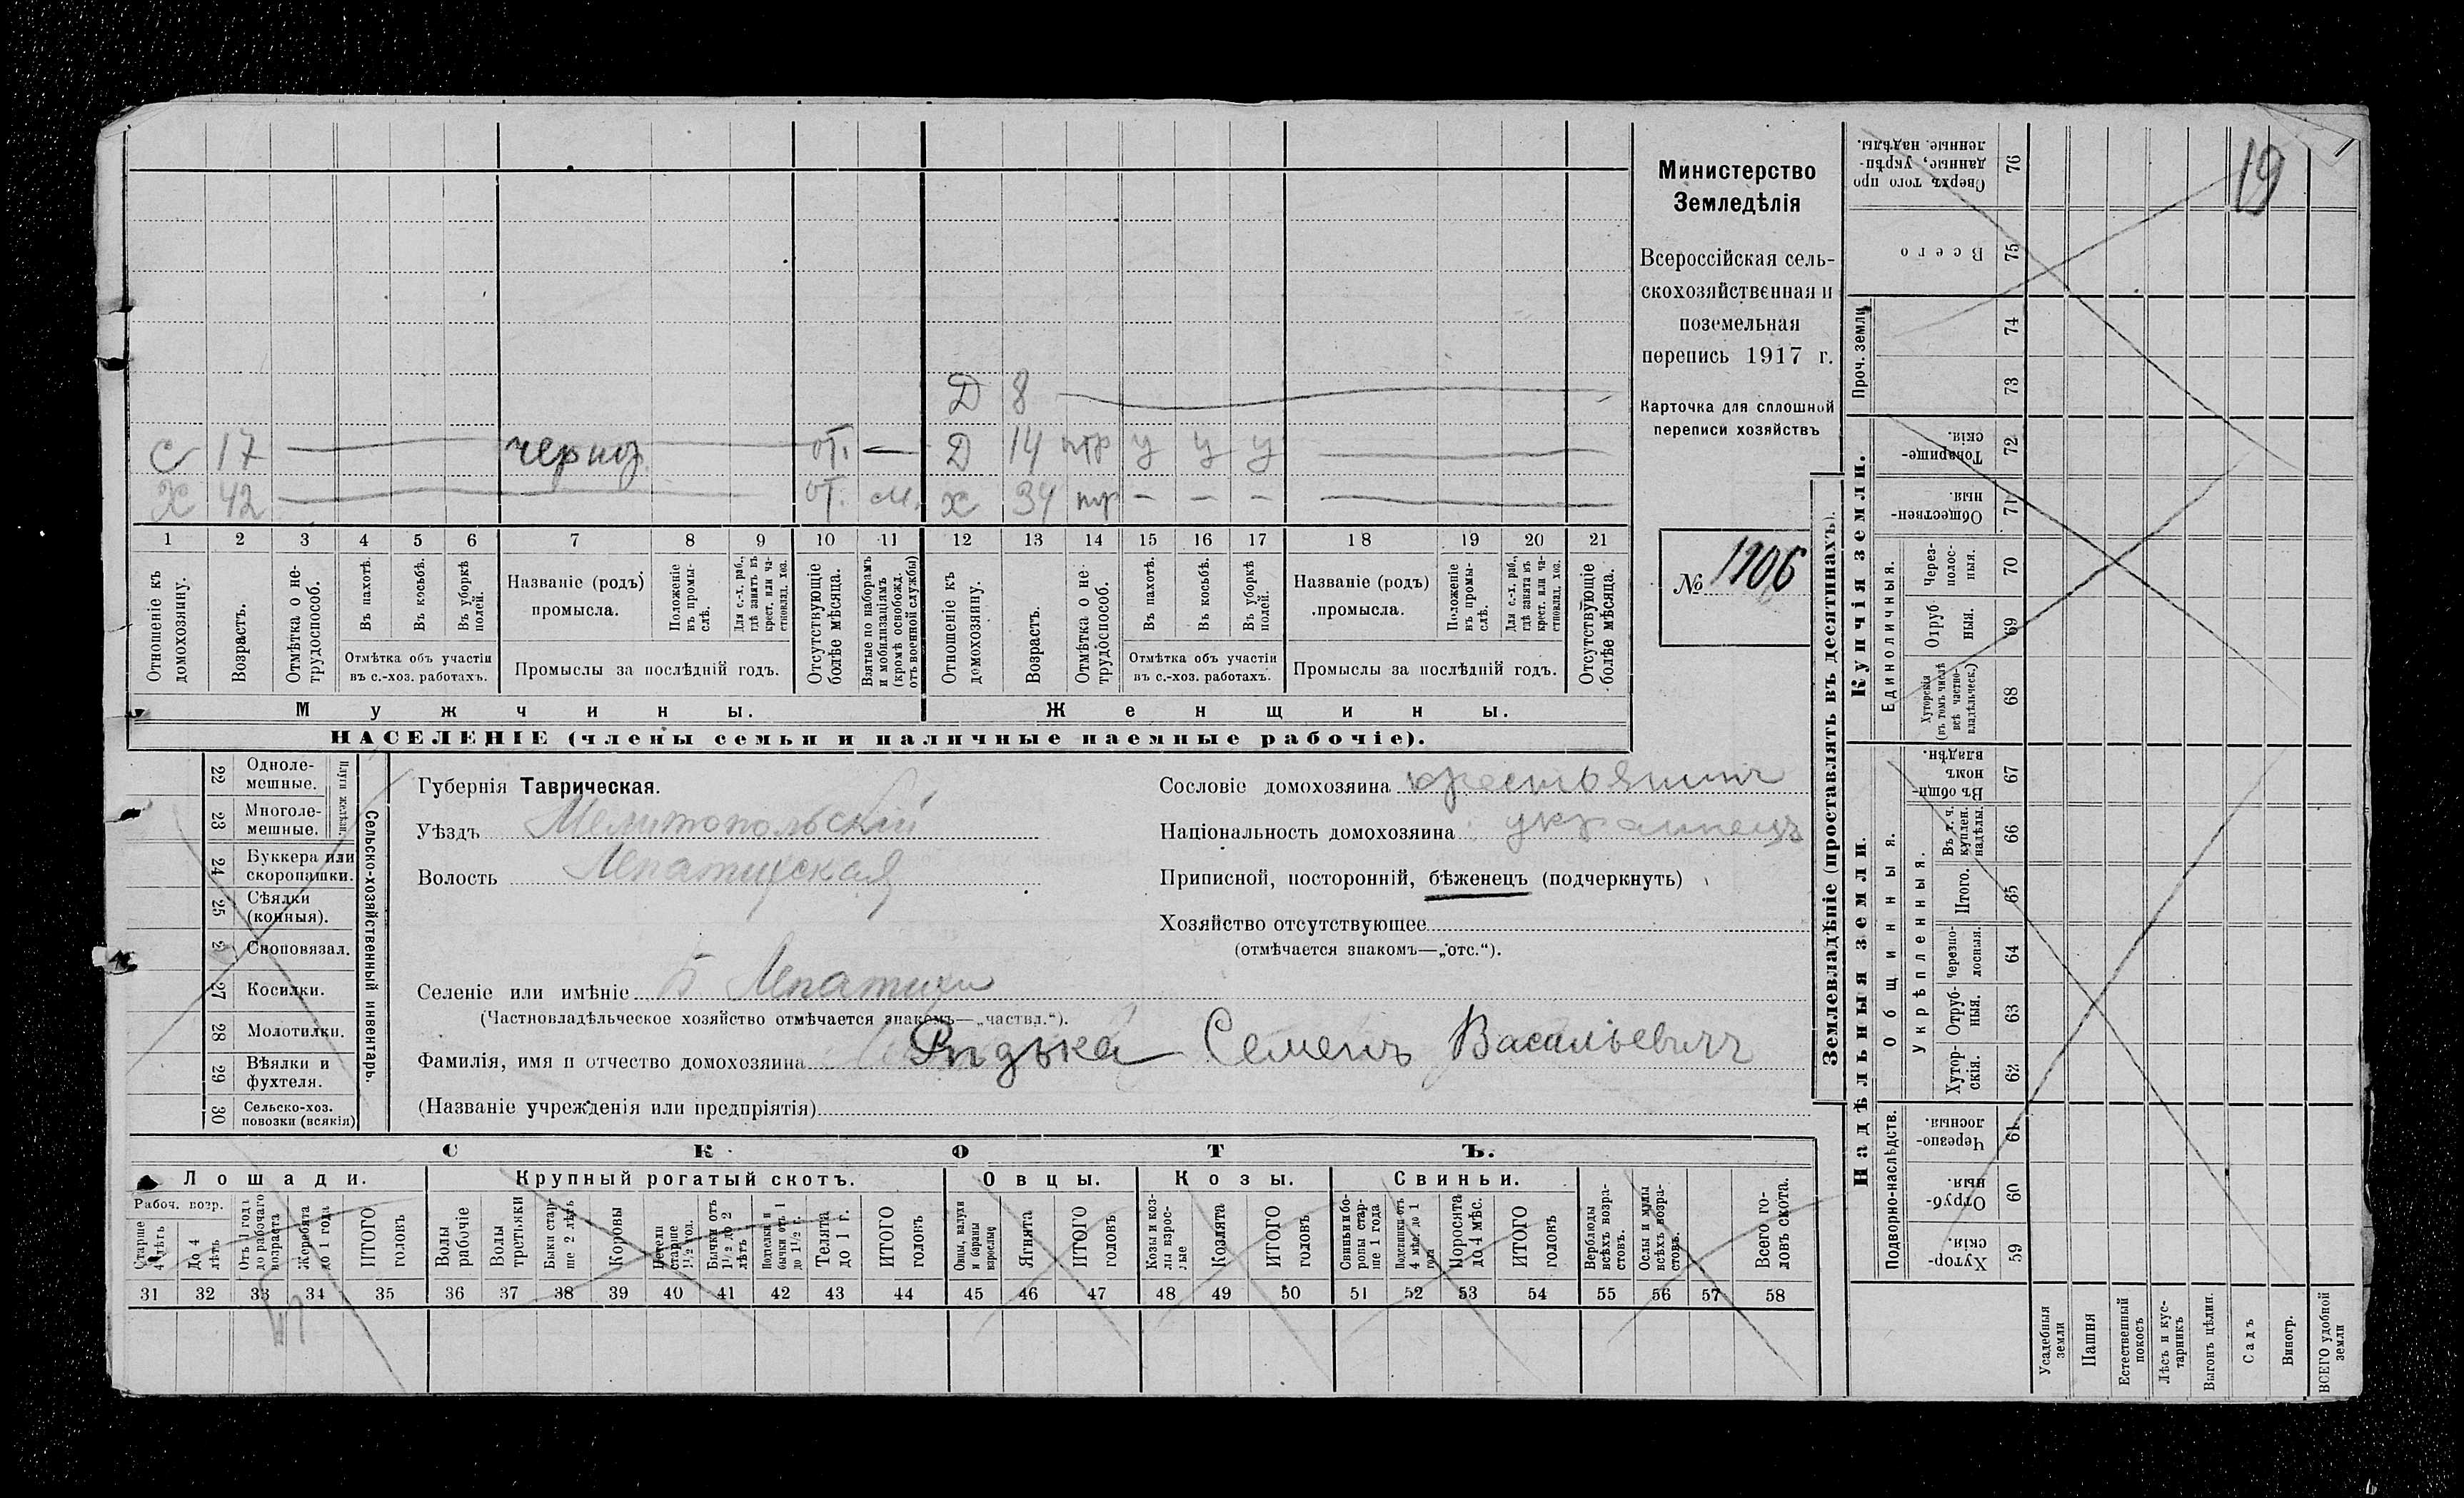 19
Министерство
Земледѣлія
Всероссійская сель-
скохозяйственная и
поземельная
перепись 1917 г.
Карточка для сплошной
переписи хозяйствъ
№ 1106
Д 8
С 17 — от. — Д 14 нтр у у у —
Х 42 — от. м. х 34 нтр — — — —
1 2 3 4 5 6 7 8 9 10 11 12 13 14 15 16 17 18 19 20 21
Отношеніе къ домохозяину.
Возрастъ.
Отмѣтка о не-трудоспособ.
Въ пахотѣ.
Въ косьбѣ.
Въ уборкѣ полей.
Отмѣтка объ участіи въ с.-хоз. работахъ.
Названіе (родъ) промысла.
Положеніе въ промы-слѣ.
Для с.-х. раб., гдѣ занятъ въ крест. или ча-стновлад. хоз.
Промыслы за послѣдній годъ.
Отсутствующіе болѣе мѣсяца.
Взятые по наборамъ и мобилизаціямъ (кромѣ освобожд. отъ военной службы)
Отношеніе къ домохозяину.
Возрастъ.
Отмѣтка о не-трудоспособ.
Въ пахотѣ.
Въ косьбѣ.
Въ уборкѣ полей.
Отмѣтка объ участіи въ с.-хоз. работахъ.
Названіе (родъ) промысла.
Положеніе въ промы-слѣ.
Для с.-х. раб., гдѣ занята въ крест. или ча-стновлад. хоз.
Промыслы за послѣдній годъ.
Отсутствующіе болѣе мѣсяца.
Мужчины. Женщины.
НАСЕЛЕНІЕ (члены семьи и наличные наемные рабочіе).
Сельско-хозяйственный инвентарь.
Плуги желѣзн.
22 Одноле-мешные.
23 Многоле-мешные.
24 Буккера или скоропашки.
25 Сѣялки (конныя).
Сноповязал.
27 Косилки.
28 Молотилки.
29 Вѣялки и фухтеля.
30 Сельско-хоз. повозки (всякія)
Губернія Таврическая.
Уѣздъ Мелитопольскій
Волость Лепатихская
Селеніе или имѣніе Б Лепатиха
(Частновладѣльческое хозяйство отмѣчается знакомъ—„частвл.“).
Фамилія, имя и отчество домохозяина Ридька Семенъ Васильевичъ
(Названіе учрежденія или предпріятія)
Сословіе домохозяина крестьянинъ
Національность домохозяина украинецъ
Приписной, посторонній, бѣженецъ (подчеркнуть)
Хозяйство отсутствующее
(отмѣчается знакомъ—„отс.“).
СКОТЪ.
Лошади. Крупный рогатый скотъ. Овцы. Козы. Свиньи.
Рабоч. возр.
Старше 4 лѣтъ
До 4 лѣтъ
Отъ 1 года до рабочаго возраста
Жеребята до 1 года
ИТОГО головъ
Волы рабочіе
Волы третьяки
Быки стар-ше 2 лѣтъ
Коровы
Нетели старше 1½ год.
Бычки отъ 1½ до 2 лѣтъ
Подтелки и бычки отъ 1 до 1½ г.
Телята до 1 г.
ИТОГО головъ
Овцы, валухи и бараны взрослые
Ягнята
ИТОГО головъ
Козы и коз-лы взрос-лые
Козлята
ИТОГО головъ
Свиньи и бо-ровы стар-ше 1 года
Подсвинки отъ 4 мѣс. до 1 года
Поросята до 4 мѣс.
ИТОГО головъ
Верблюды всѣхъ возра-стовъ.
Ослы и мулы всѣхъ возра-стовъ.
Всего го-ловъ скота.
31 32 33 34 35 36 37 38 39 40 41 42 43 44 45 46 47 48 49 50 51 52 53 54 55 56 57 58
Землевладѣніе (проставлять въ десятинахъ).
Купчія земли.
Сверхъ того про-данные, укрѣп-ленные надѣлы. 76
Всего 75
Проч. земли
74
73
Товарище-скія. 72
Обществен-ныя. 71
Единоличныя.
Через-полос-ныя. 70
Отруб-ныя. 69
Хуторскія (въ томъ числѣ всѣ частно-владѣльческ.) 68
Надѣльныя земли.
Общинныя.
Въ общи-номъ владѣн. 67
Укрѣпленныя.
Въ т. ч. куплен. надѣлы. 66
Итого. 65
Черезпо-лосныя. 64
Отруб-ныя. 63
Хутор-скія. 62
Подворно-наслѣдств.
Черезпо-лосныя. 61
Отруб-ныя. 60
Хутор-скія. 59
Усадебныя земли
Пашня
Естественный покосъ
Лѣсъ и кус-тарникъ
Выгонъ цѣлин.
Садъ
Виногр.
ВСЕГО удобной земли